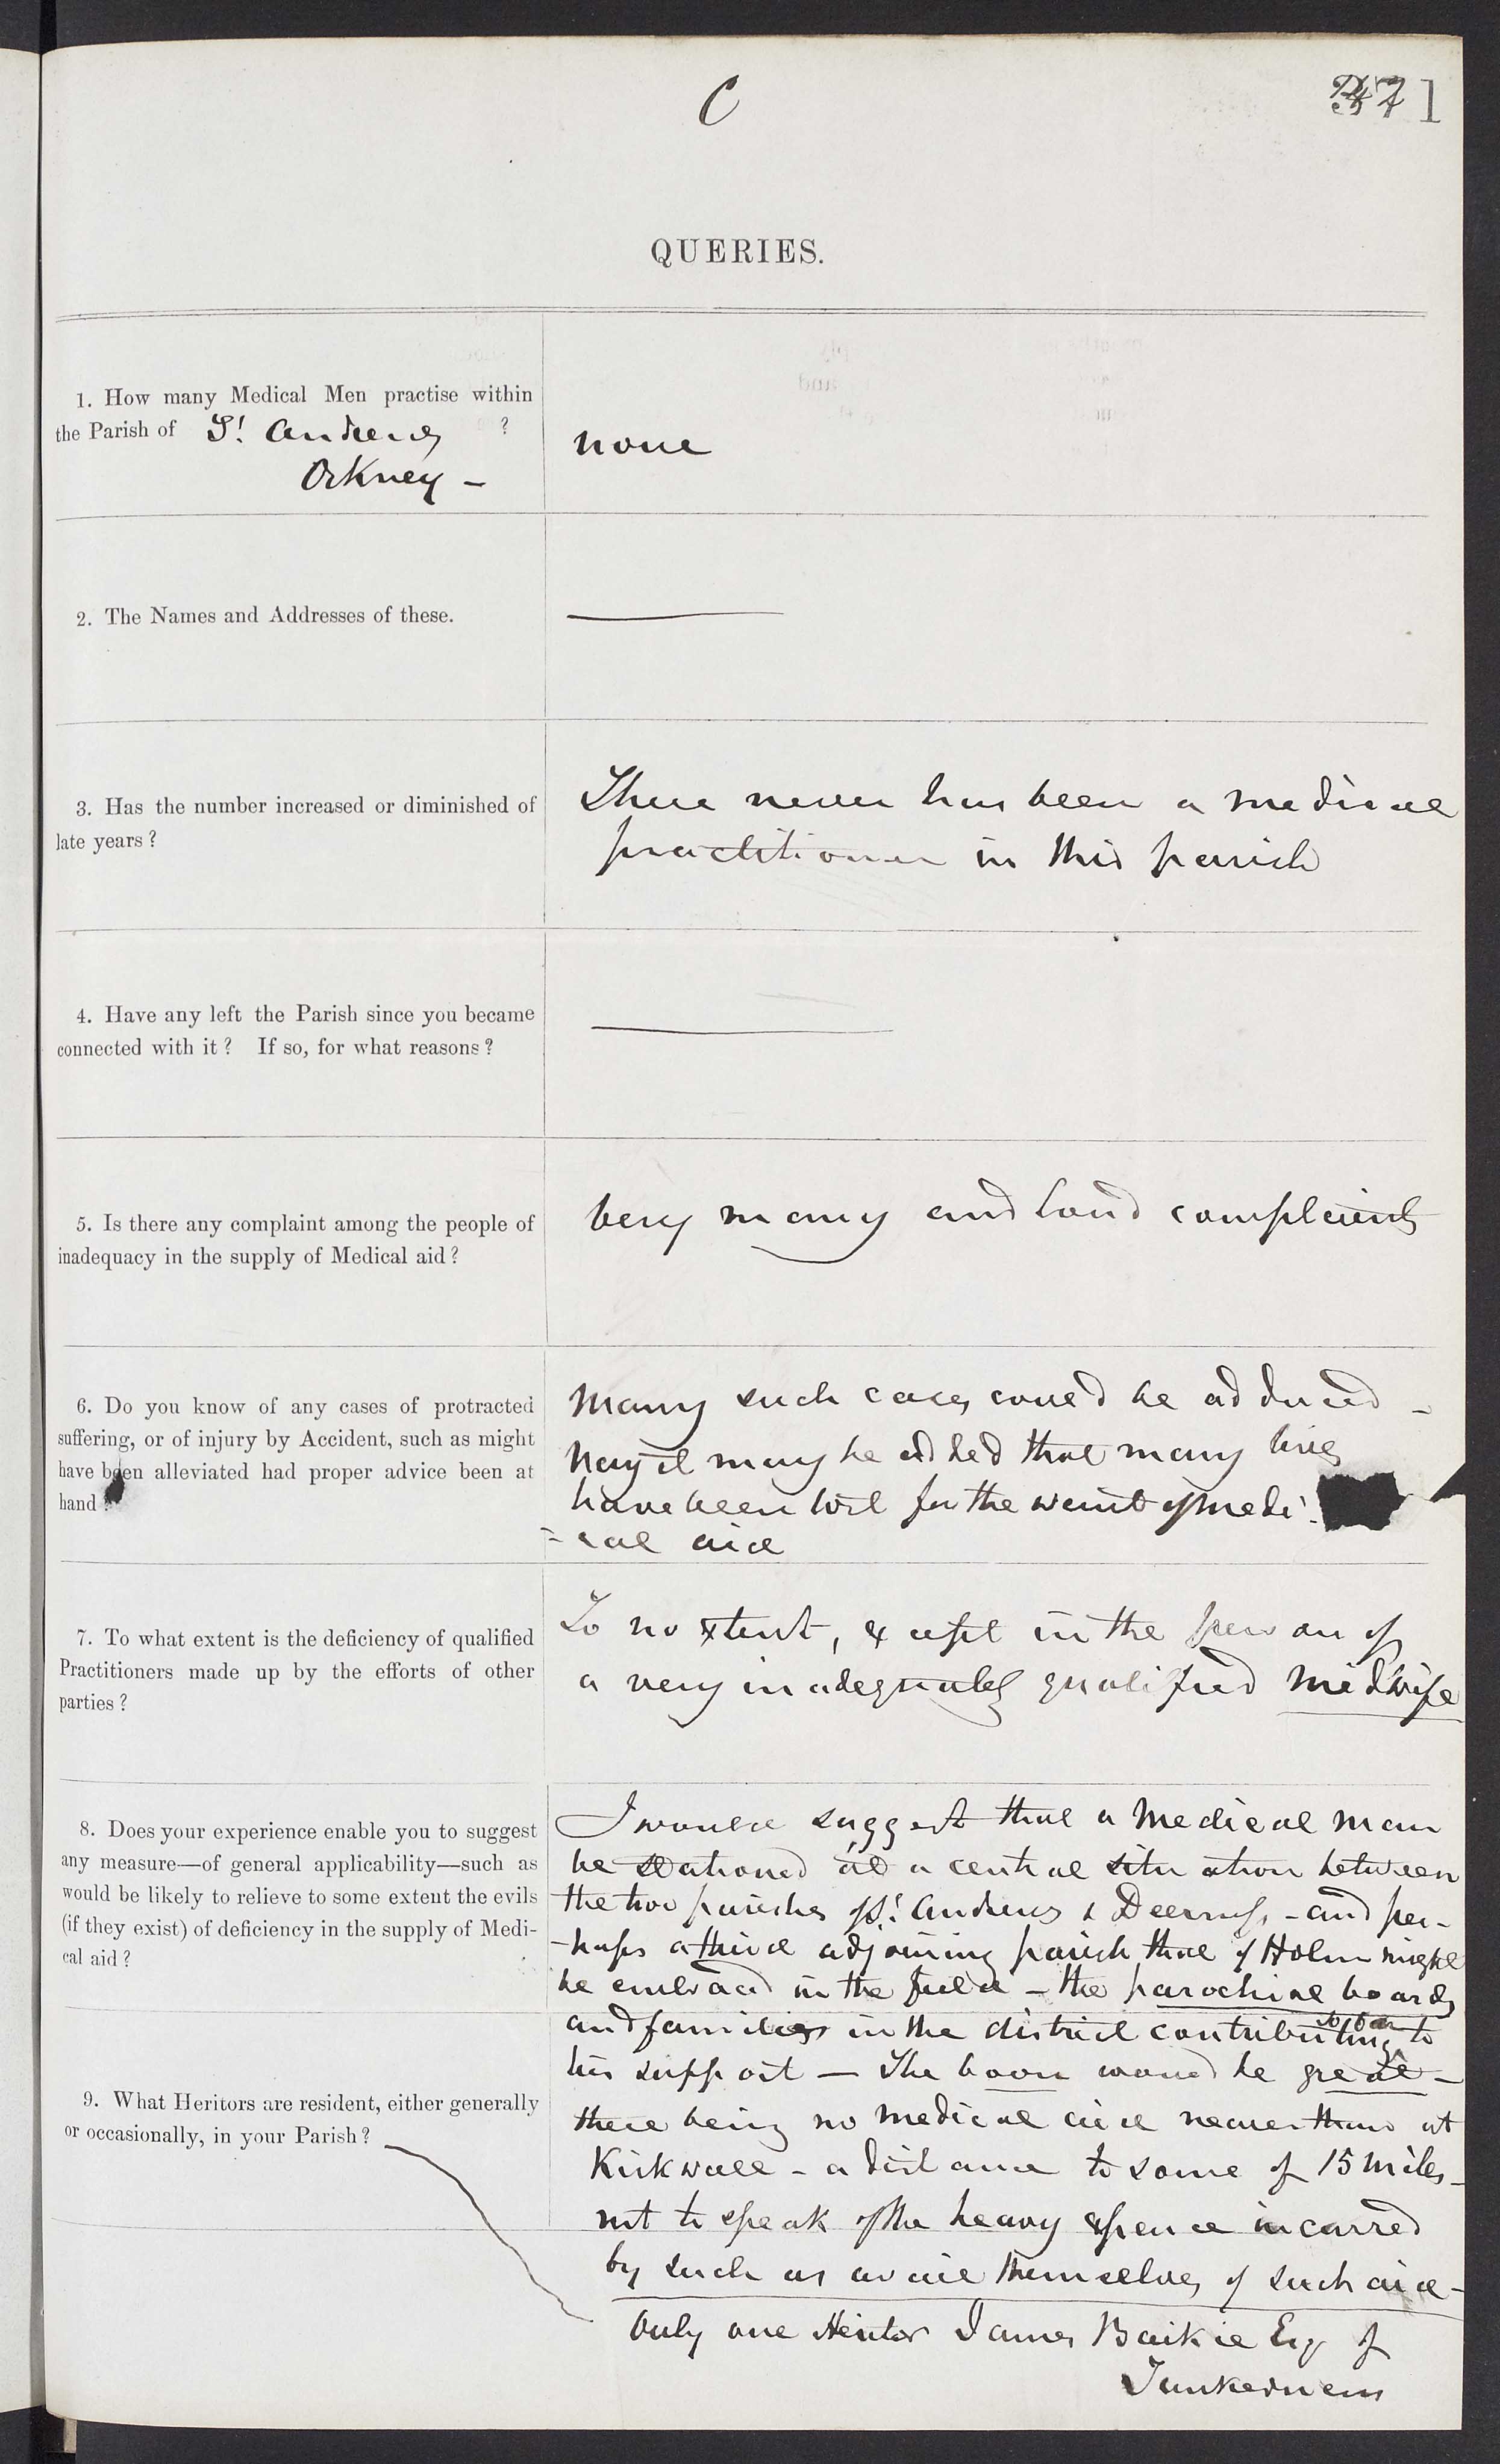 C
371
QUERIES.
1. How many Medical Men practise within
the Parish of St. Andrews ?
Orkney -
none
2. The Names and Addresses of these.
3. Has the number increased or diminished of
late years?
There never has been a medical
practitioner in this parish
4. Have any left the Parish since you became
connected with it? If so, for what reasons?
5. Is there any complaint among the people of
inadequacy in the supply of Medical aid?
very many and loud complaints
6. Do you know of any cases of protracted
suffering, or of injury by Accident, such as might
have been alleviated had proper advice been at
hand?
Many such cases could be adduced -
Nay it may be added that many lives
have been lost for the want of medi-
-cal aid
7. To what extent is the deficiency of qualified
Practitioners made up by the efforts of other
parties?
To no extent, except in the person of
a very inadequately qualified midwife
8. Does your experience enable you to suggest
any measure—of general applicability—such as
would be likely to relieve to some extent the evils
(if they exist) of deficiency in the supply of Medi-
cal aid?
I would suggest that a Medical man
be stationed at a central situation between
the two parishes of St. Andrews & Deerness, - and per-
-haps a third adjoining parish that of Holm might
be embraced in the field - the parochial boards
and families in the district contributing to
his support — The boon would be great -
there being no medical aid nearer than at
Kirkwall - a distance to some of 15 miles -
not to speak of the heavy expence incurred
by such as avail themselves of such aid -
9. What Heritors are resident, either generally
or occasionally, in your Parish?
Only one Heritor James Baikie Esq of
Tankerness